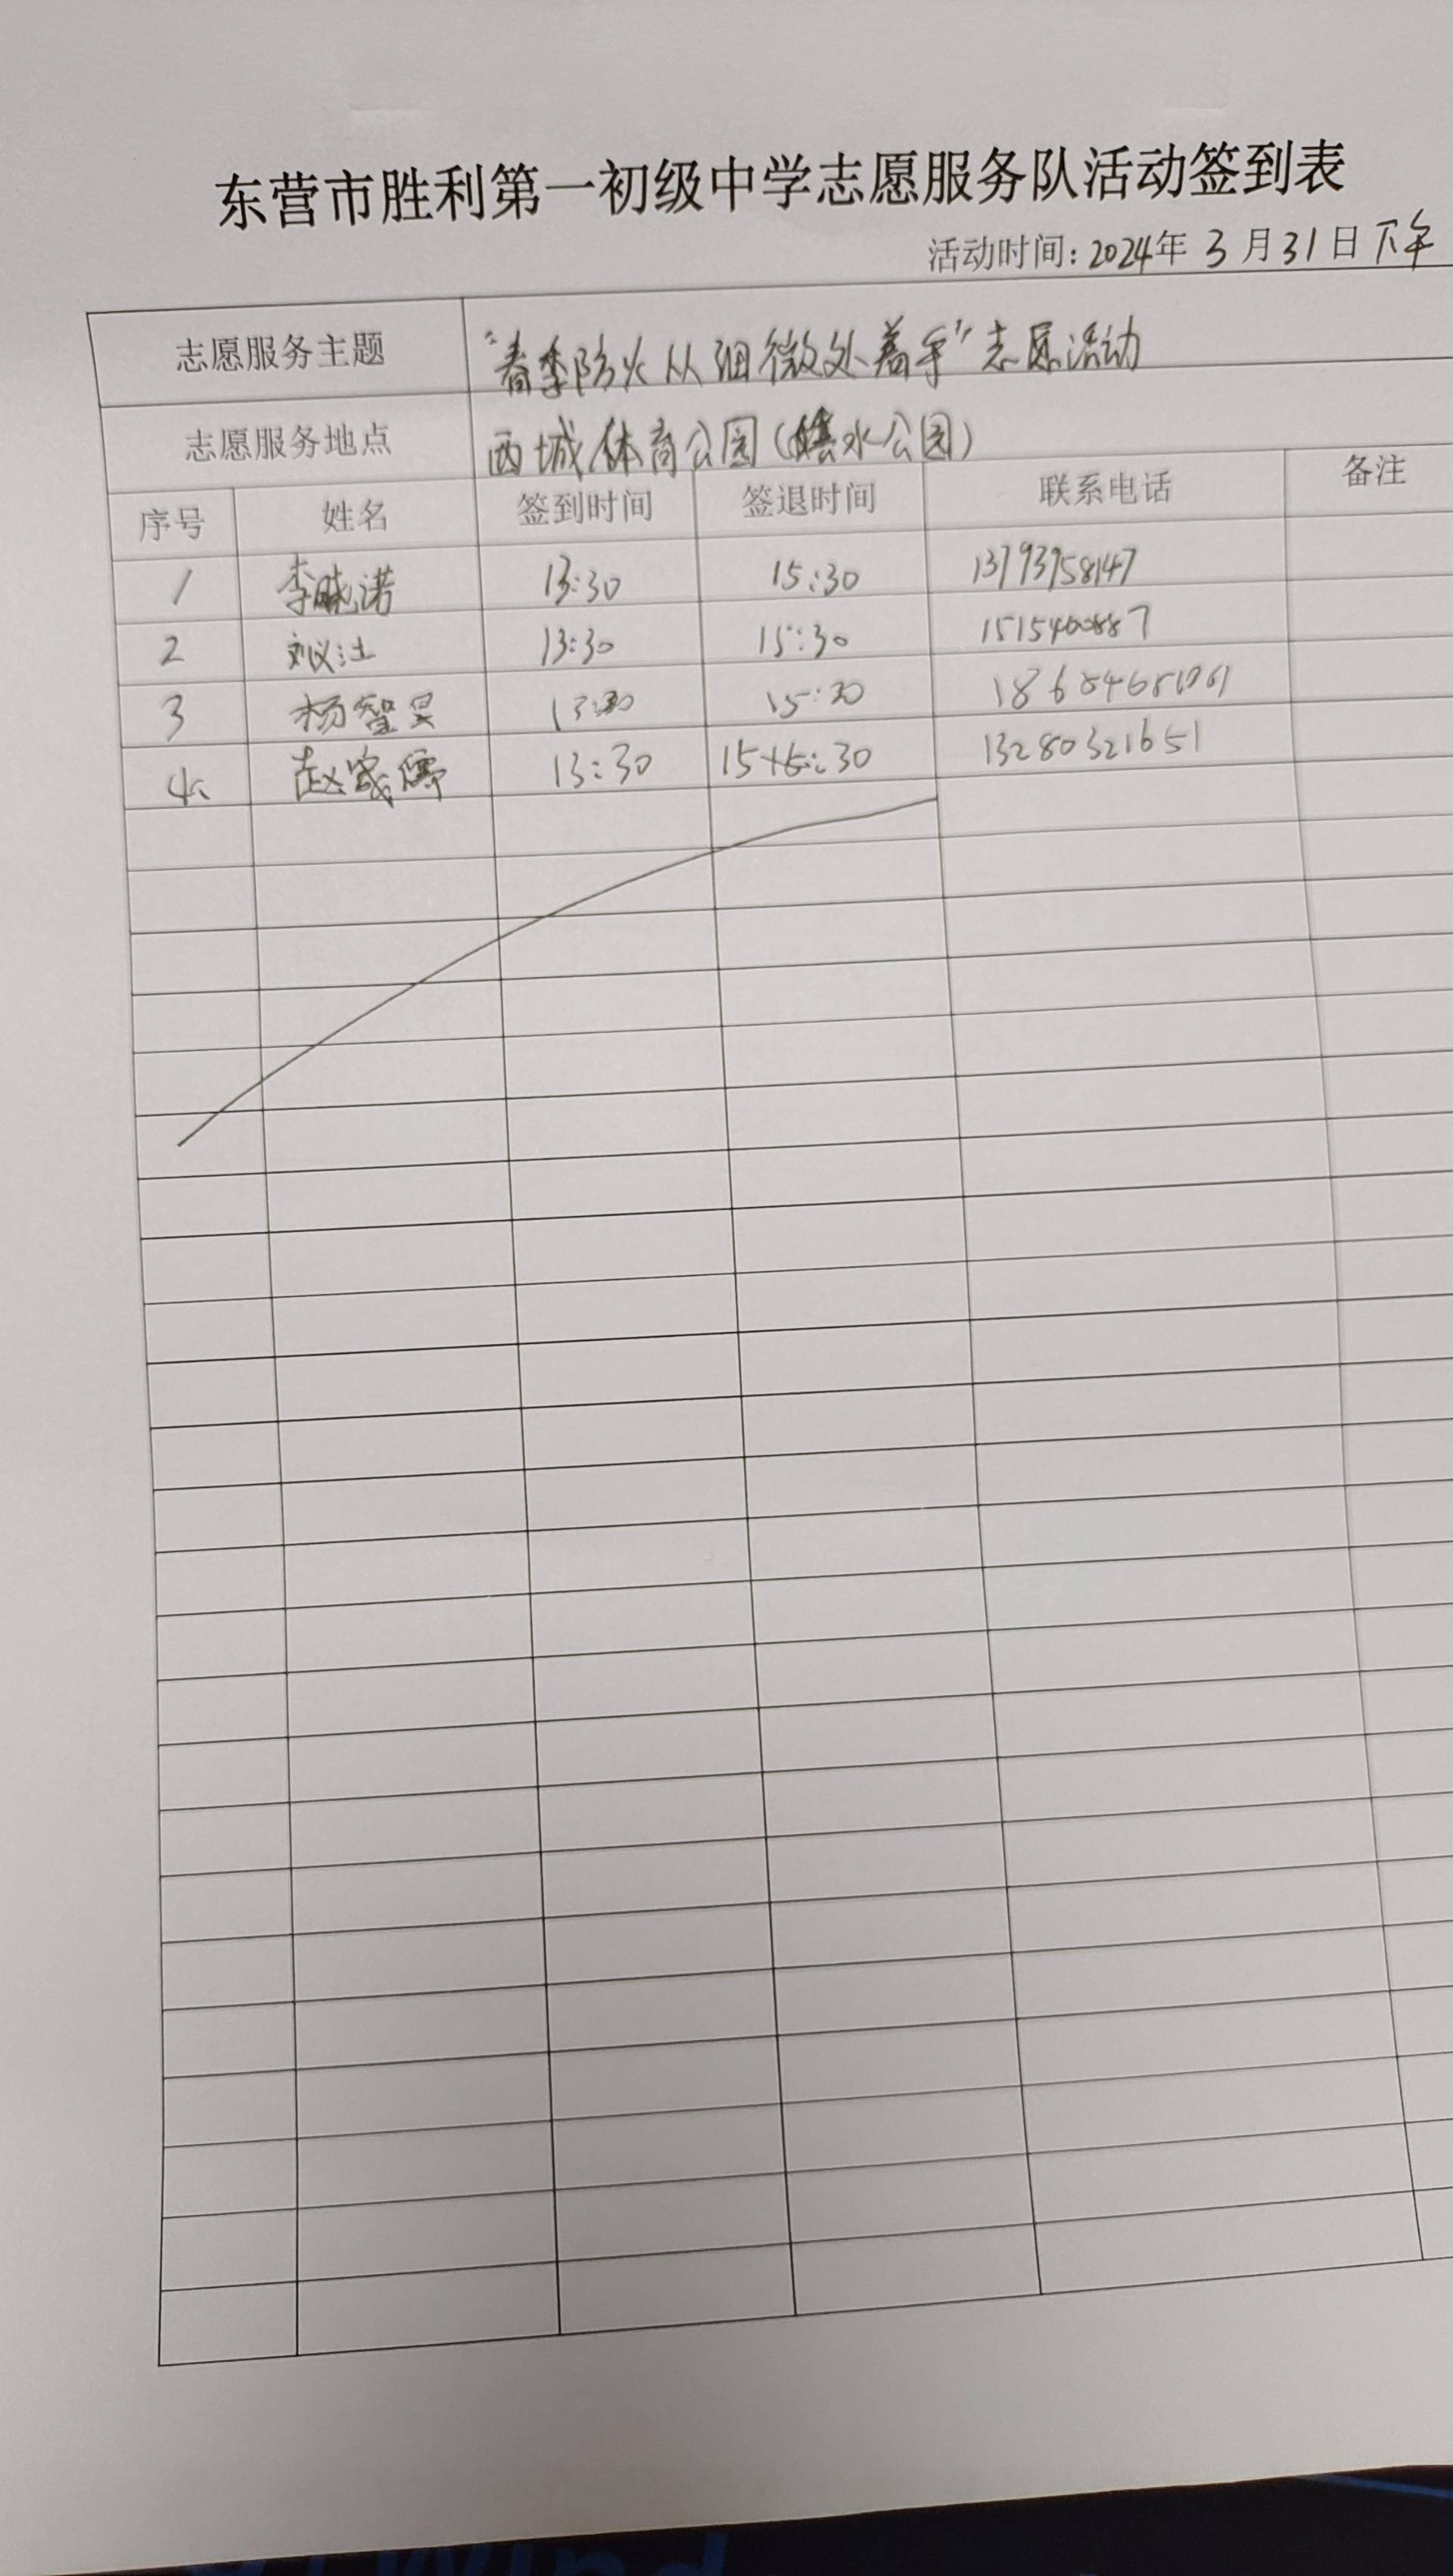 东营市胜利第一初级中学志愿服务队活动签到表
活动时间:2024年3月31日下午
志愿服务主题 "春季防火从细微处着手"志愿活动
志愿服务地点 西城体育公园(水公园)
序号 姓名 签到时间 签退时间 联系电话 备注
1 李晓诺 13:30 15:30 13793758147
2 刘议 13:30 15:30
3 杨智昊 13:30 15:30
4 赵 儒 13:30 15:30 13280321651